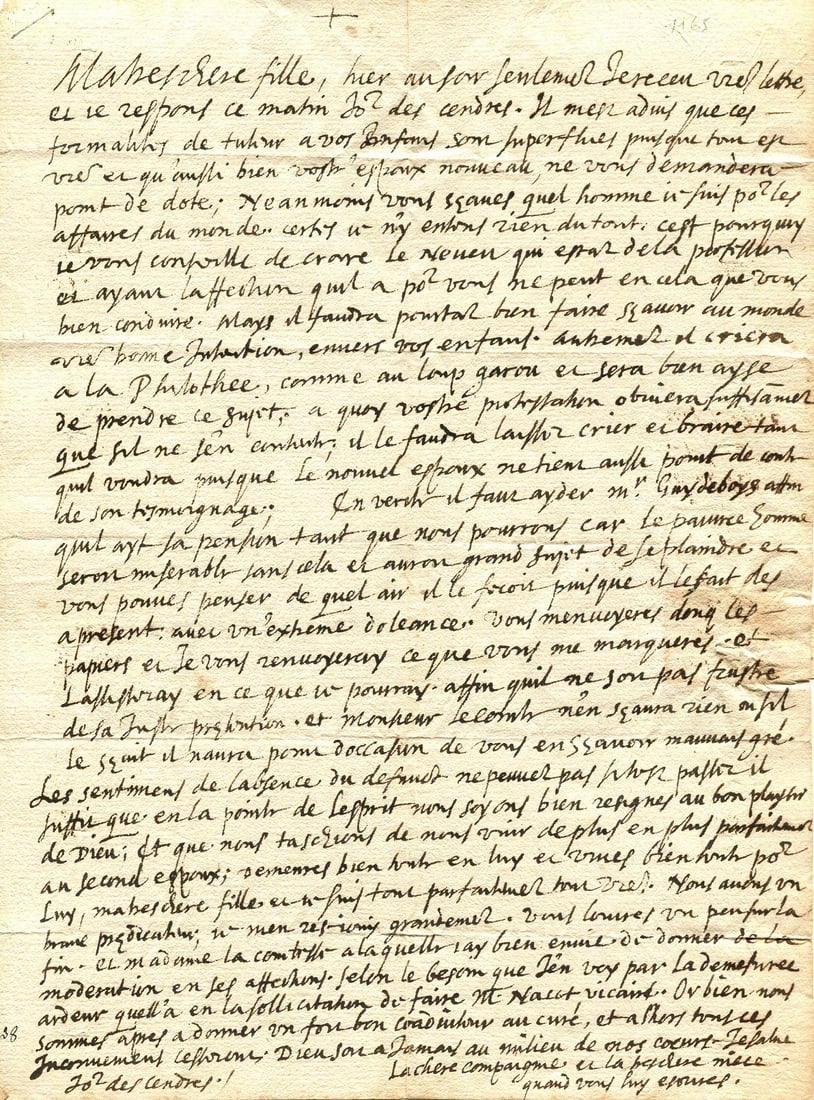 +
1165
Matreschere fille, hier au soir seulemēt Je receu vrē lettre,
et ie respons ce matin Jor des cendres. Il m'est aduis que ces
formalités de tuteur a vos Enfans sont superflues puisque tout est
vrē et qu'aussi bien vostr'espoux nouveau, ne vous demandera
point de dote; Neanmoins vous sçaues quel homme ie suis por les
affaires du monde. certes ie n'y entens rien du tout: c'est pourquoy
ie vous conseille de croire le Neveu qui estāt de la profession
et ayant laffection quil a por vous ne peut en cela que vous
bien conduire. Mays il faudra pourtāt bien faire sçavoir au monde
vrē bonne Intention, envers vos enfans. autremēt il criera
a la Philothee, comme au loup garou et sera bien ayse
de prendre ce sujet; a quoy vostre protestation obviera suffisāmēt
que sil ne s'en contente; il le faudra laisser crier et braire tant
quil voudra puisque le nouvel espoux ne tient aussi point de conte
de son tesmoignage; En verité il faut ayder mr. Guydeboys affin
quil ayt sa pension tant que nous pourrons car le pauvre homme
seroit miserable sans cela et auroit grand sujet de se plaindre et
vous pouves penser de quel air il le feroit puisque il le fait des
a present: avec un'extreme doleance. Vous m'envoyeres donq les
papiers et Je vous renvoyeray ce que vous me marqueres. et
Lassisteray en ce que ie pourray. affin quil ne soit pas frustré
de sa Juste pretention. et monsieur le comte n'en sçaura rien ou sil
le sçait il naura point d'occasion de vous en sçavoir mauvais gré.
Les sentimens de labsence du defunct ne peuvēt pas si tost passer il
suffit que en la pointe de lesprit nous soyons bien resignés au bon playsir
de Dieu; Et que nous taschions de nous unir de plus en plus parfaitemēt
au second espoux; demeures bien toute en luy et vives bien toute por
Luy, matreschere fille et ie suis tout parfaitemēt tout vrē. Nous avons un
brave predicateur; ie m'en resiouis grandemēt. vous louires un peu sur la
fin. et madame la comtesse a laquelle iay bien envie de donner de la
moderation en ses affections. selon le besoin que Jen voy par La demesuree
ardeur quell'a en la sollicitation de faire M Nacot vicaire. Or bien nous
sommes apres a donner un fort bon coadiuteur au curé, et alhors tous ces
Inconvenient cesseront. Dieu soit a Jamais au milieu de nos coeurs. Je salue
Jor des cendres./ La chere compaignie et la treschere niece
quand vous luy escrires.
38